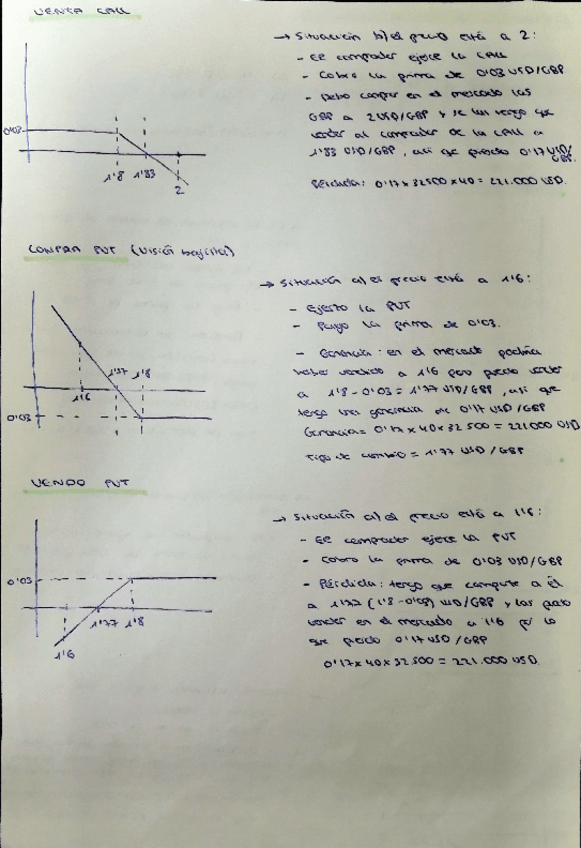 VENTA CALL
→ Situación b) el precio está a 2:
- El comprador ejerce la CALL
- Cobro la prima de 0'03 USD/GBP
- Debo comprar en el mercado las
GBP a 2USD/GBP y se las tengo que
vender al comprador de la CALL a
1'83 USD/GBP, así que pierdo 0'17 USD/
GBP.
Pérdida: 0'17 x 32500 x 40 = 221.000 USD.
0'03
1'8 1'83
2
COMPRA PUT (Visión bajista)
→ Situación a) el precio está a 1'6:
- Ejerzo la PUT
- Pago la prima de 0'03.
- Ganancia: en el mercado podría
haber vendido a 1'6 pero puedo vender
a 1'8 - 0'03 = 1'77 USD/GBP, así que
tengo una ganancia de 0'17 USD/GBP
Ganancia = 0'17 x 40 x 32 500 = 221000 USD
Tipo de cambio = 1'77 USD/GBP
1'77 1'8
1'6
0'03
VENDO PUT
→ Situación a) el precio está a 1'6:
- El comprador ejerce la PUT
- Cobro la prima de 0'03 USD/GBP
- Pérdida: tengo que comprarle a él
a 1'77 (1'8 - 0'03) USD/GBP y las puedo
vender en el mercado a 1'6 por lo
que pierdo 0'17 USD/GBP
0'17 x 40 x 32.500 = 221.000 USD.
0'03
1'77 1'8
1'6